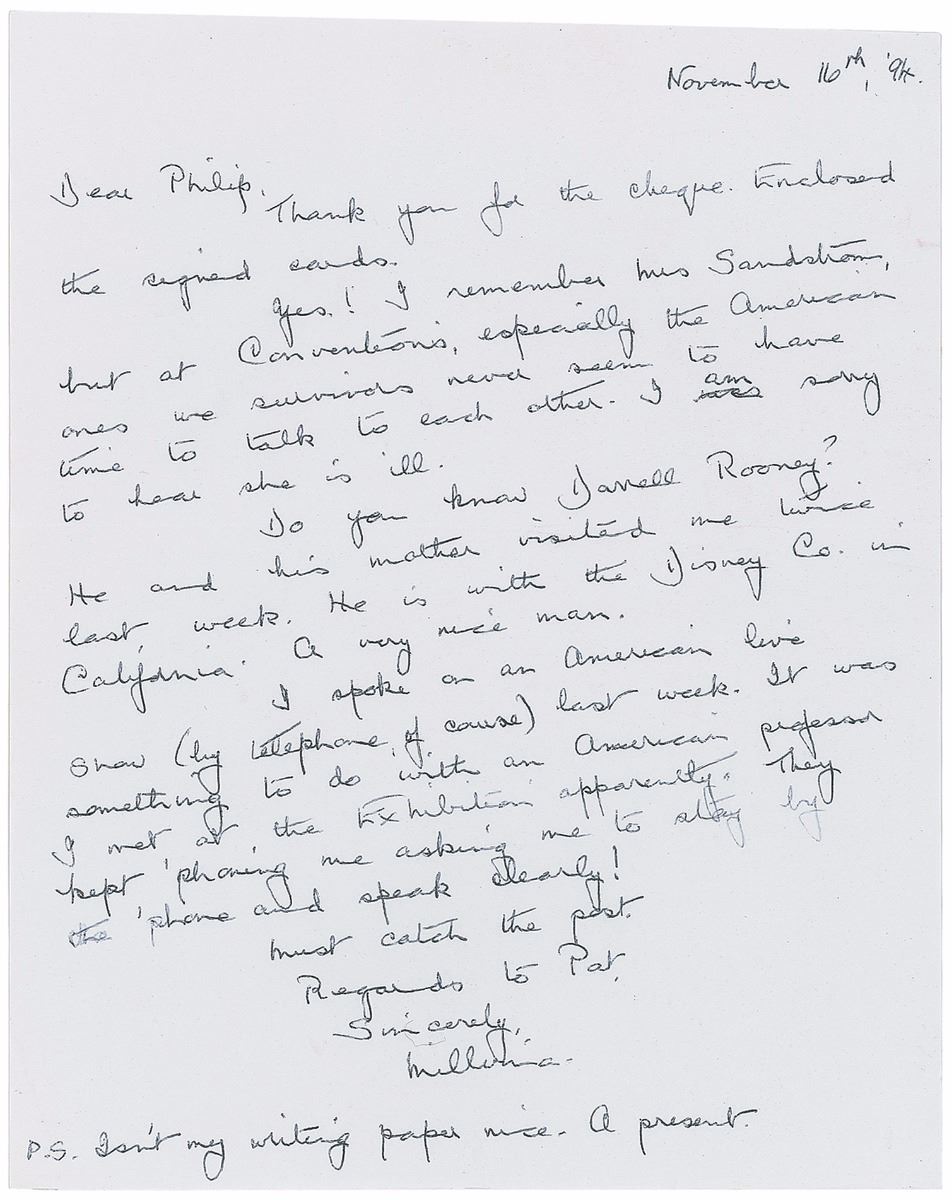 November 16th, '94.
Dear Philip,
Thank you for the cheque. Enclosed
the signed cards.
Yes! I remember Mrs Sandström,
but at Conventions, especially the American
ones we survivors never seem to have
time to talk to each other. I was am sorry
to hear she is ill.
Do you know Darrell Rooney?
He and his mother visited me twice
last week. He is with the Disney Co. in
California. A very nice man.
I spoke on an American live
show (by telephone, of course) last week. It was
something to do with an American professor
I met at the Exhibition apparently. They
kept 'phoning me asking me to stay by
the 'phone and speak clearly!
Must catch the post.
Regards to Pat.
Sincerely,
Millvina.
P.S. Isn't my writing paper nice. A present.